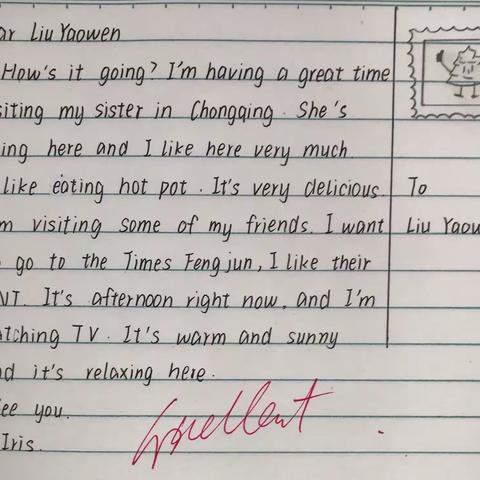 ar Liu Yaowen
How's it going? I'm having a great time
siting my sister in Chongqing. She's
ing here and I like here very much
like eating hot pot. It's very delicious.
m visiting some of my friends. I want
go to the Times Fengjun, I like their
NT. It's afternoon right now, and I'm
atching TV. It's warm and sunny
nd it's relaxing here.
ee you.
Iris.
Excellent
To
Liu Yaow